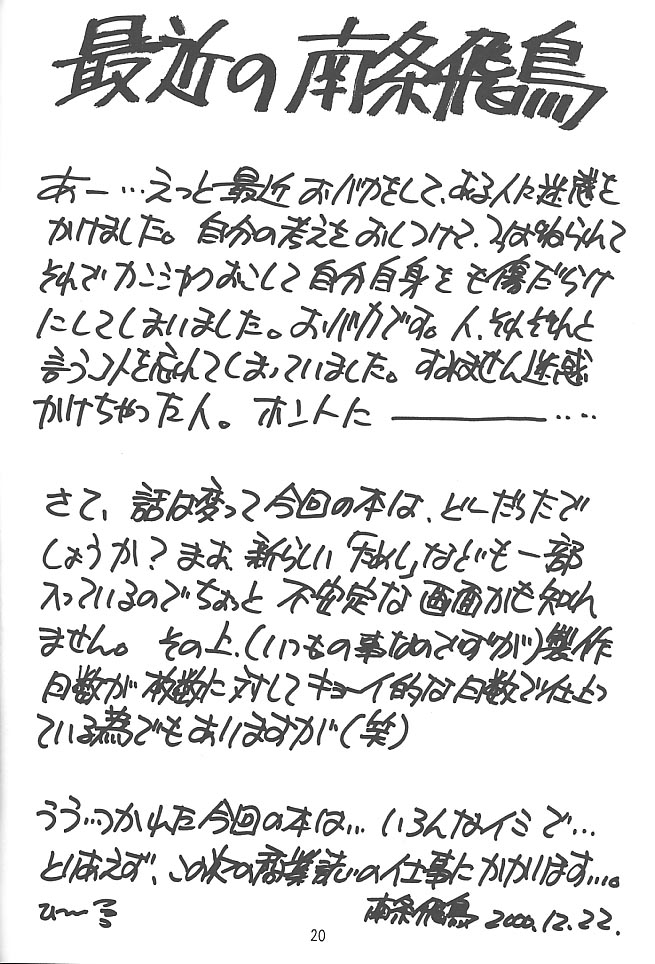 最近の南条飛鳥
あー…えっと最近おバカをして、ある人に迷惑を
かけました。自分の考えをおしつけて、つぱねられて
それでカンシャクおこして自分自身をも傷だらけ
にしてしまいました。おバカです。人、それぞれと
言うコトを忘れてしまっていました。すみません迷惑
かけちゃった人。ホントに――――――‥‥
さて、話は変って今回の本は、どーだったで
しょうか?まぁ、新らしい「ためし」なども一部
入っているのでちょっと不安定な画面かも知れ
ません。その上、(いつもの事なのですが)製作
日数が枚数に対してキョーイ的な日数で仕上っ
ている為でもありますが(笑)
うう…つかれた今回の本は…いろんなイミで…
とりあえず、この次の商業誌の仕事にかかります…。
ひ〜る
南条飛鳥 2000.12.22.
20